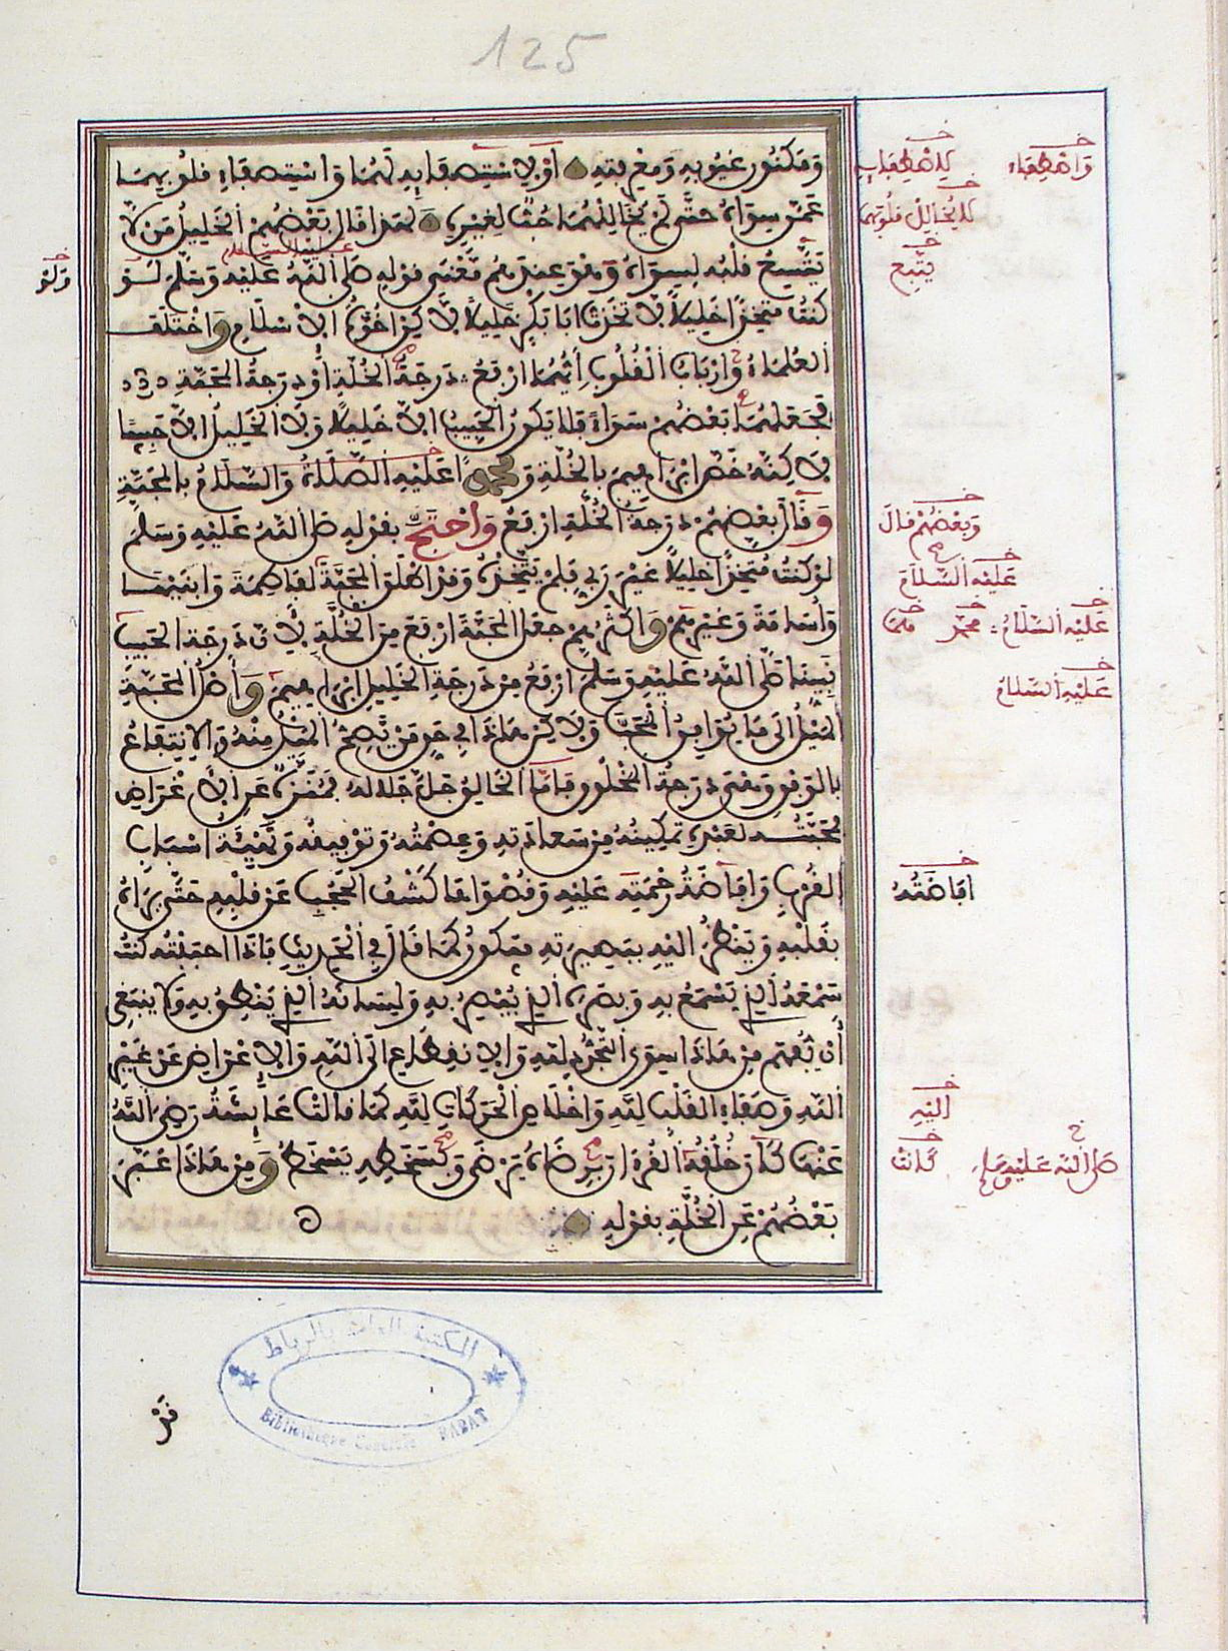 125
وَمَكْنُونِ غُيُوبِهِ وَمَعْرِفَتِهِ أَوْ لِاسْتِصْفَايِهِ لَهُمَا وَاسْتِصْفَاءِ قُلُوبِهِمَا
عَمَّن سِوَاهُ حَتَّى لَمْ يُخَالِلْهُمَا حُبٌّ لِغَيْرِهِ لِهَذَا قَالَ بَعْضُهُمْ الْخَلِيلُ مَن لَّا
يَتَّسِعُ قَلْبُهُ لِسِوَاهُ وَهُوَ عِنْدَهُمْ مَعْنَى قَوْلِهِ صَلَّى اللَّهُ عَلَيْهِ وَسَلَّمَ لَوْ
كُنتُ مُتَّخِذًا خَلِيلًا لَاتَّخَذْتُ أَبَا بَكْرٍ خَلِيلًا لَكِنْ أُخُوَّةُ الْإِسْلَامِ وَاخْتَلَفَ
الْعُلَمَاءُ وَأَرْبَابُ الْقُلُوبِ أَيُّهُمَا أَرْفَعُ دَرَجَةً الْخُلَّةِ أَوْ دَرَجَةُ الْمَحَبَّةِ
فَجَعَلَهُمَا بَعْضُهُمْ سَوَاءً فَلَا يَكُونُ الْحَبِيبُ إِلَّا خَلِيلًا وَلَا الْخَلِيلُ إِلَّا حَبِيبًا
لَاكِنَّهُ خَصَّ إِبْرَاهِيمَ بِالْخُلَّةِ وَمُحَمَّدًا عَلَيْهِ الصَّلَاةُ وَالسَّلَامُ بِالْمَحَبَّةِ
وَقَالَ بَعْضُهُمْ دَرَجَةُ الْخُلَّةِ أَرْفَعُ وَاحْتَجَّ بِقَوْلِهِ صَلَّى اللَّهُ عَلَيْهِ وَسَلَّمَ
لَوْ كُنتُ مُتَّخِذًا خَلِيلًا غَيْرَ رَبِّي فَلَمْ يَتَّخِذْهُ وَقَدْ أَطْلَقَ الْمَحَبَّةَ لِفَاطِمَةَ وَابْنَيْهَا
وَأُسَامَةَ وَغَيْرِهِمْ وَأَكْثَرُهُمْ جَعَلَ الْمَحَبَّةَ أَرْفَعَ مِنَ الْخُلَّةِ لِأَنَّ دَرَجَةَ الْحَبِيبِ
نَبِيِّنَا صَلَّى اللَّهُ عَلَيْهِ وَسَلَّمَ أَرْفَعُ مِنْ دَرَجَةِ الْخَلِيلِ إِبْرَاهِيمَ وَأَصْلُ الْمَحَبَّةِ
الْمَيْلُ إِلَى مَا يُوَافِقُ الْمُحِبَّ وَلَاكِنْ هَاذَا فِي حَقِّ مَنْ يَصِحُّ الْمَيْلُ مِنْهُ وَالِانْتِفَاعُ
بِالْوَفْقِ وَهْيَ دَرَجَةُ الْمَخْلُوقِ فَأَمَّا الْخَالِقُ جَلَّ جَلَالُهُ فَمُنَزَّهٌ عَنِ الْأَغْرَاضِ
فَمَحَبَّتُهُ لِعَبْدِهِ تَمْكِينُهُ مِنْ سَعَادَتِهِ وَعِصْمَتُهُ وَتَوْفِيقُهُ وَتَهْيِئَةُ أَسْبَابِ
الْقُرْبِ وَإِفَاضَةُ رَحْمَتِهِ عَلَيْهِ وَقُصْوَاهَا كَشْفُ الْحُجُبِ عَنْ قَلْبِهِ حَتَّى يَرَاهُ
بِقَلْبِهِ وَيَنْظُرَ إِلَيْهِ بِبَصِيرَتِهِ فَيَكُونُ كَمَا قَالَ فِي الْحَدِيثِ فَإِذَا أَحْبَبْتُهُ كُنْتُ
سَمْعَهُ الَّذِي يَسْمَعُ بِهِ وَبَصَرَهُ الَّذِي يُبْصِرُ بِهِ وَلِسَانَهُ الَّذِي يَنْطِقُ بِهِ وَلَا يَنْبَغِي
أَنْ يُفْهَمَ مِنْ هَاذَا سِوَى التَّجَرُّدِ لِلَّهِ وَالِانْقِطَاعِ إِلَى اللَّهِ وَالْإِعْرَاضِ عَنْ غَيْرِ
اللَّهِ وَصَفَاءِ الْقَلْبِ لِلَّهِ وَإِخْلَاصِ الْحَرَكَاتِ لِلَّهِ كَمَا قَالَتْ عَائِشَةُ رَضِيَ اللَّهُ
عَنْهَا كَانَ خُلُقُهُ الْقُرْآنَ بِرِضَاهُ يَرْضَى وَبِسَخَطِهِ يَسْخَطُ وَمِنْ هَاذَا عَبَّرَ
بَعْضُهُمْ عَنِ الْخُلَّةِ بِقَوْلِهِ
وَاصْطِفَاءِ
لِاصْطِفَايِهِ
لَا يُخَالِلْ قُلُوبَهُمَا
يَتَّبِعُ
وَلَوْ
وَبَعْضُهُمْ قَالَ
عَلَيْهِ السَّلَامُ
عَلَيْهِ السَّلَامُ مُحَمَّد
عَلَيْهِ السَّلَامُ
إِفَاضَتُهُ
إِلَيْهِ
كَانَتْ
صَلَّى اللَّهُ عَلَيْهِ وَسَلَّمَ
المكتبة العامة بالرباط
Bibliothèque Générale RABAT